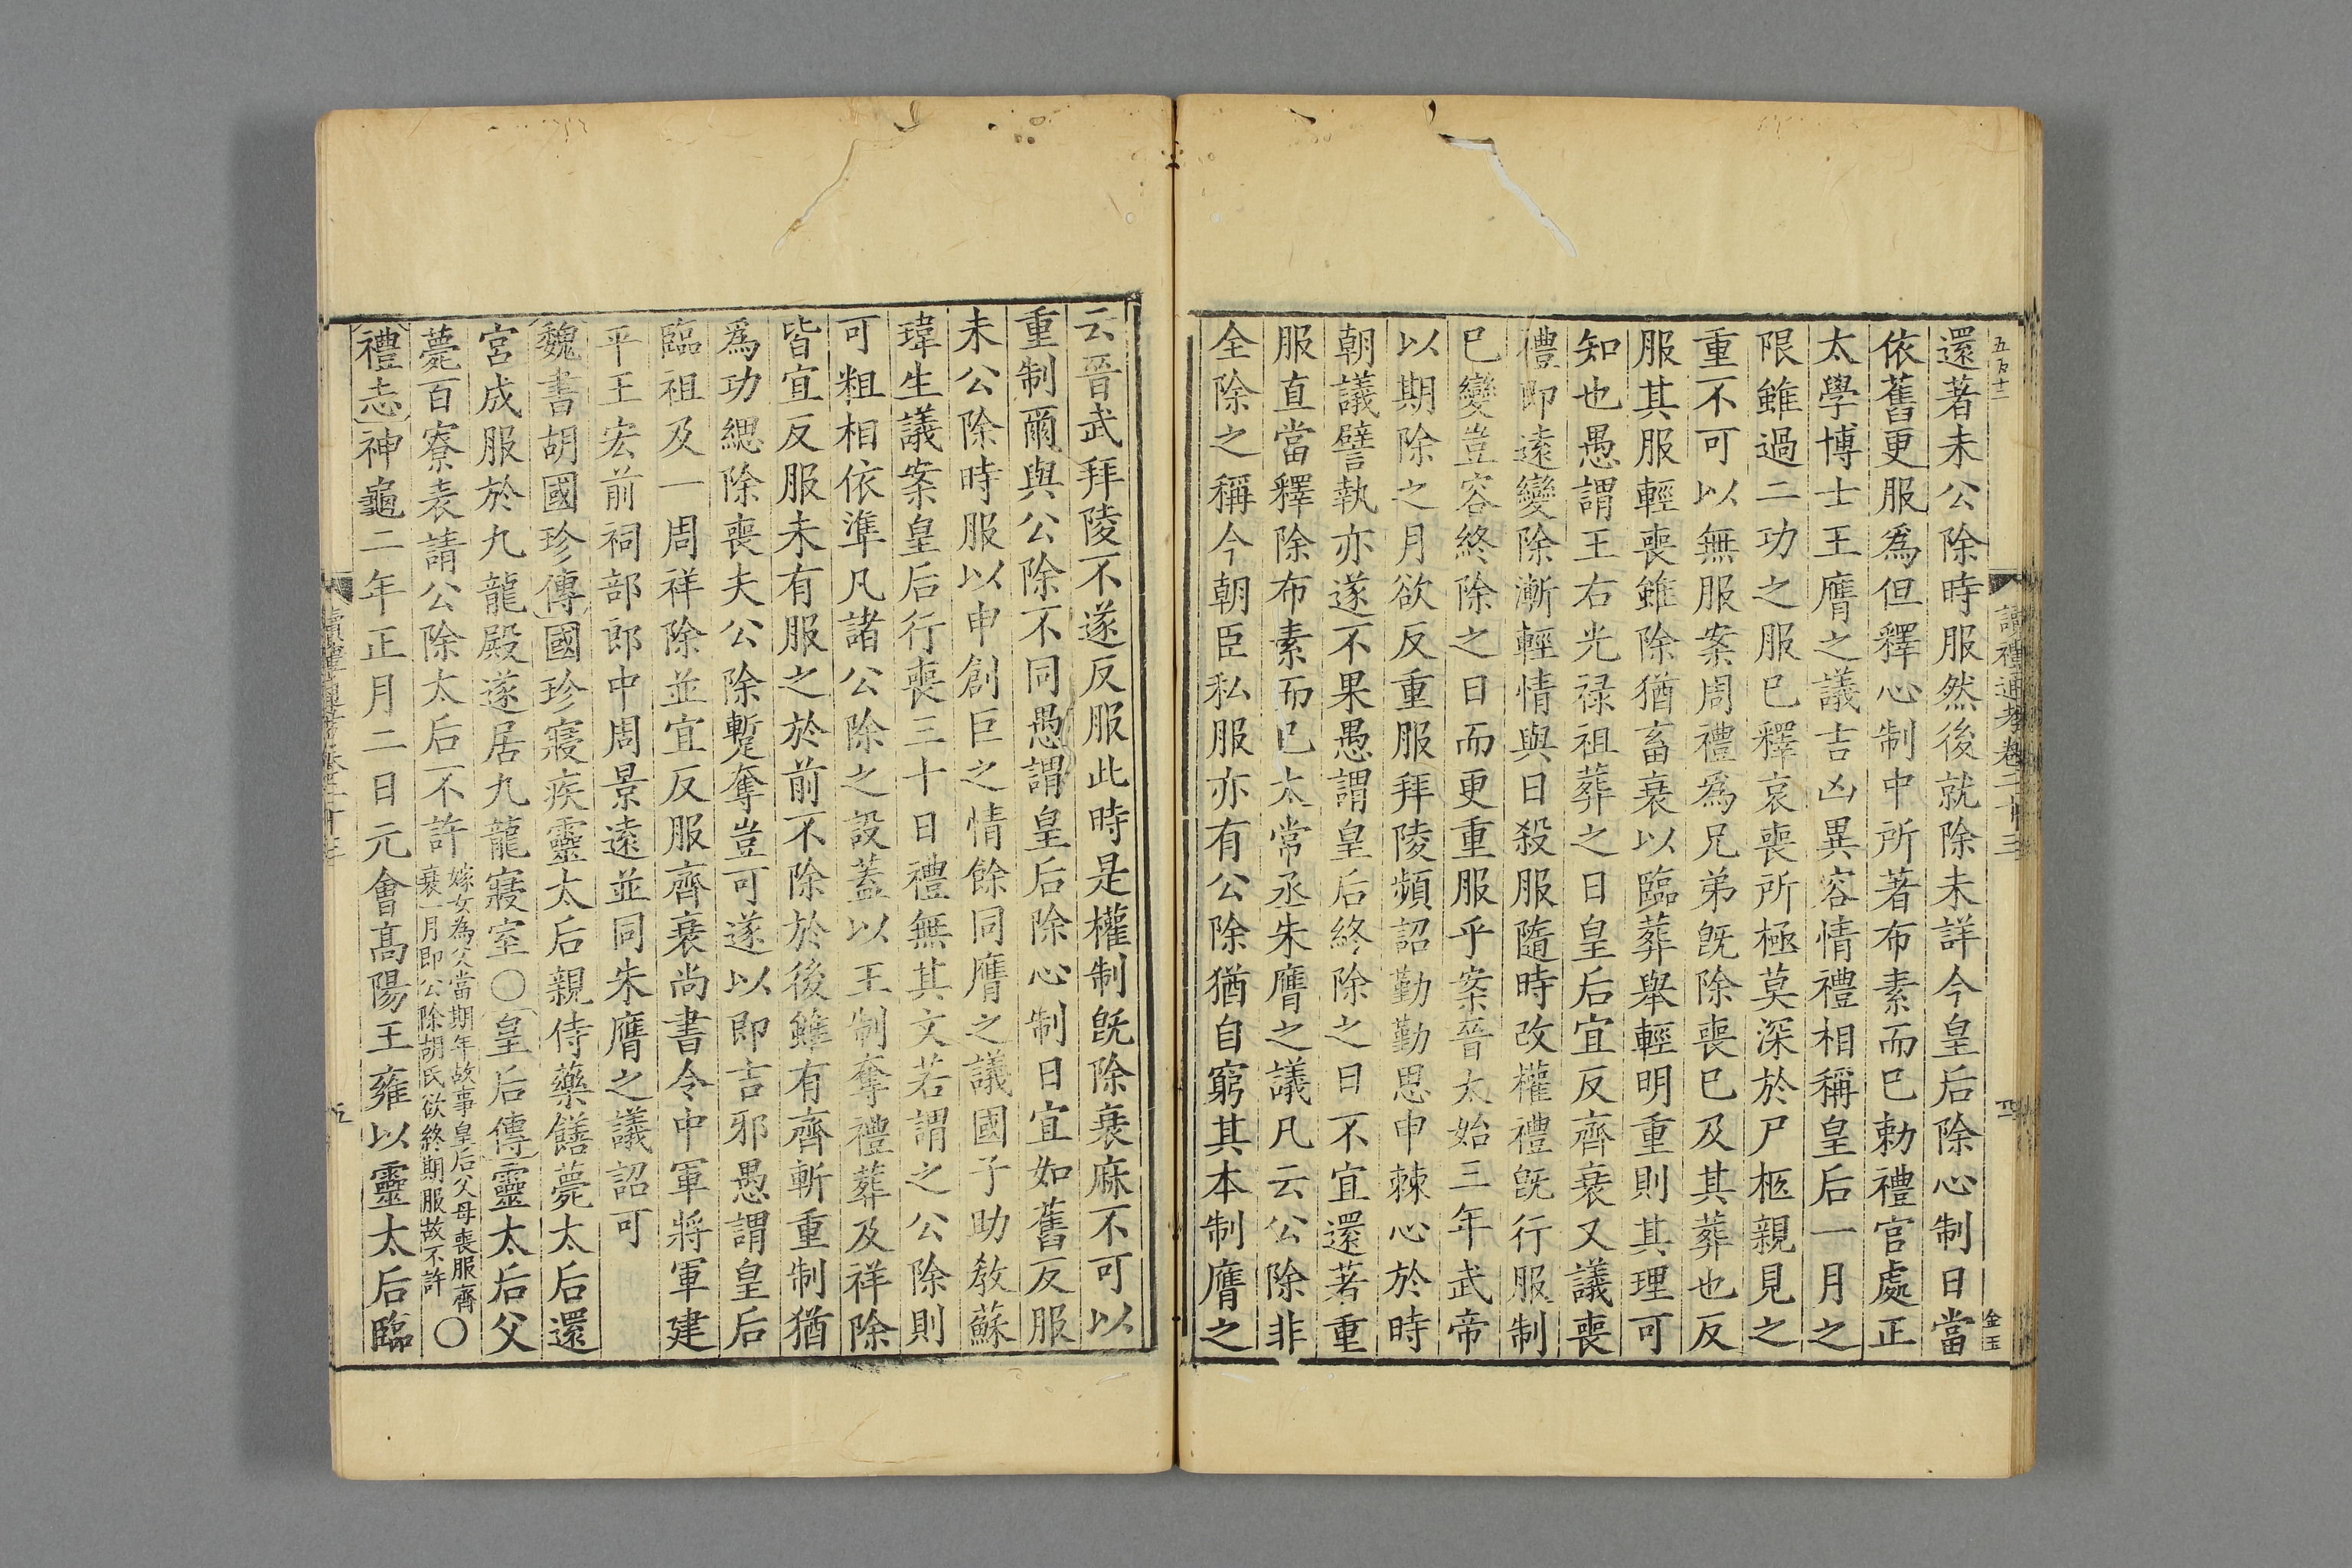 還著未公除時服然後就除未詳今皇后除心制日當
依舊更服為但釋心制中所著布素而已勅禮官處正
太學博士王膺之議吉凶異容情禮相稱皇后一月之
限雖過二功之服已釋哀喪所極莫深於尸柩親見之
重不可以無服案周禮為兄弟旣除喪已及其葬也反
服其服輕喪雖除猶畜衰以臨葬舉輕明重則其理可
知也愚謂王右光禄祖葬之日皇后宜反齊衰又議喪
禮即遠變除漸輕情與日殺服隨時改權禮旣行服制
已變豈容終除之日而更重服乎案晉太始三年武帝
以期除之月欲反重服拜陵頻詔勤勤思申棘心於時
朝議譬執亦遂不果愚謂皇后終除之日不宜還著重
服直當釋除布素而已太常丞朱膺之議凡云公除非
全除之稱今朝臣私服亦有公除猶自窮其本制膺之
云晉武拜陵不遂反服此時是權制旣除衰麻不可以
重制爾與公除不同愚謂皇后除心制日宜如舊反服
未公除時服以申創巨之情餘同膺之議國子助教蘇
瑋生議案皇后行喪三十日禮無其文若謂之公除則
可粗相依準凡諸公除之設蓋以王制奪禮葬及祥除
皆宜反服未有服之於前不除於後雖有齊斬重制猶
爲功緦除喪夫公除蹔奪豈可遂以即吉邪愚謂皇后
臨祖及一周祥除並宜反服齊衰尚書令中軍將軍建
平王宏前祠部郎中周景遠並同朱膺之議詔可
魏書胡國珍傳國珍寢疾靈太后親侍藥饍薨太后還
宮成服於九龍殿遂居九龍寢室〇皇后傳靈太后父
薨百寮表請公除太后不許嫁女為父當期年故事皇后父母喪服齊衰一月即公除胡氏欲終期服故不許〇
禮志神龜二年正月二日元會高陽王雍以靈太后臨
讀禮通考卷二十三
四
金玉
五